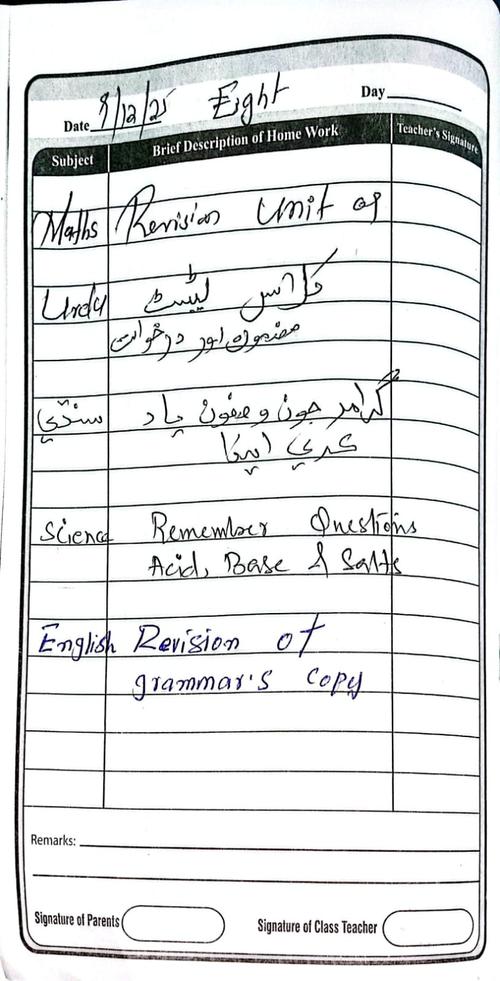 Date 9/12/25 Eight Day
Subject Brief Description of Home Work Teacher's Signature
Maths Revision Unit 09
Urdu کلاس ٹیسٹ
مضمون اور درخواست
سنڌي گرامر جون وصفون ياد
ڪري اچڻا
Science Remember Questions
Acid, Base & Salts
English Revision of
grammar's copy
Remarks:
Signature of Parents Signature of Class Teacher